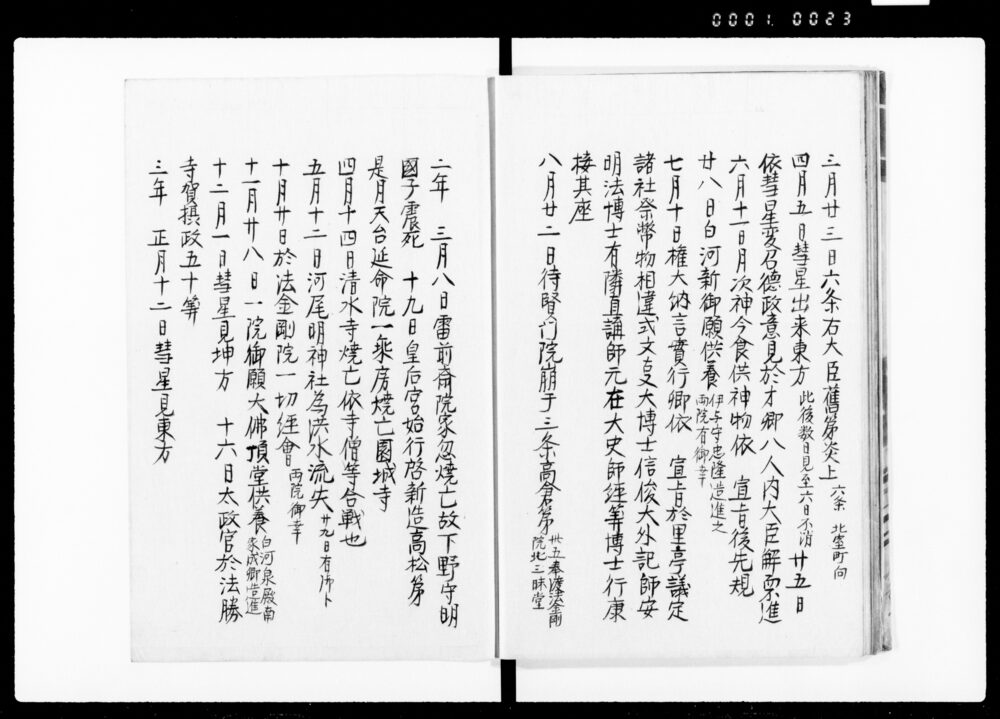 0001.0023
三月廿三日六条右大臣舊第炎上 六条 北室町向
四月五日彗星出来東方 此後数日見至六日不消 廿五日
依彗星変召徳政意見於才卿八人内大臣解禀進
六月十一日月次神今食供神物依 宣旨後先規
廿八日白河新御願供養 伊与守忠隆造進之 両院有御幸
七月十日権大納言實行卿依 宣旨於里亭議定
諸社祭幣物相違式文支大博士信俊大外記師安
明法博士有隣直講師元在大史師経等博士行康
接其座
八月廿二日待賢門院崩于三条高倉第 廿五奉渡法金剛院北三昧堂
二年 三月八日雷前斎院家忽焼亡故下野守明
國子震死 十九日皇后宮始行啓新造高松第
是月天台延命院一乗房焼亡園城寺
四月十四日清水寺焼亡依寺僧等合戦也
五月十二日河尾明神社為洪水流失 廿九日有御卜
十月廿日於法金剛院一切経會 両院御幸
十一月廿八日一院御願大佛頂堂供養 白河泉殿南 家成卿造進
十二月一日彗星見坤方 十六日太政官於法勝
寺賀摂政五十等
三年 正月十二日彗星見東方